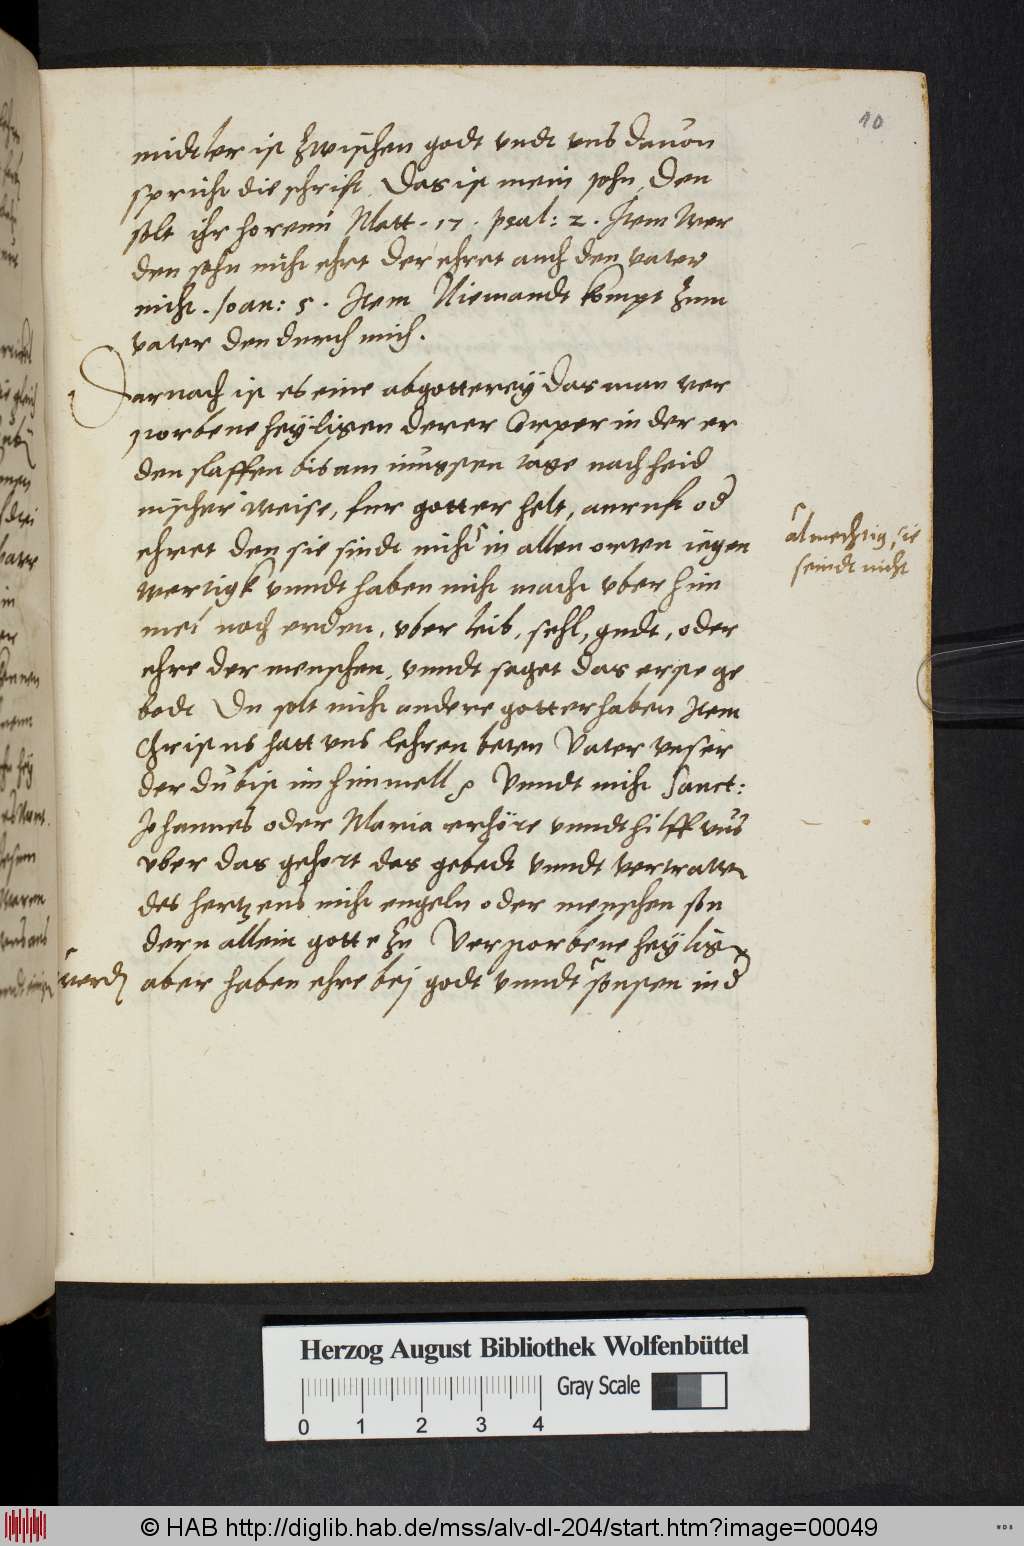 10
midtler ist zwischen godt undt uns dauon
spricht die schrift. Das ist mein sohn, Den
solt ihr horenn Matt. 17. psal: 2. Item Wer
den sohn nicht ehrt der ehret auch den vater
nicht. Joan: 5. Item Niemandt kompt zum
vater den durch mich.
Darnach ist es eine abgotterey das man ver
storbene heyligen derer Corper in der er
den slaffen bis am iungsten tage nach heid
nischer weise, fur gotter helt, anruft od
ehret den sie sindt nicht in allen orten iegen
wertigk vnndt haben nicht macht vber him
mel noch erden, vber leib, sehl, gudt, oder
ehre der menschen, vnndt saget das erste ge
bodt Du solt nicht andere gotter haben Item
Christus hatt vns lehren beten Vater vnser
der du bist im himmell Vnndt nicht Sanct:
Johannes oder Maria erhöre vnndt hilff vns
vber das gehort das gebedt vnndt vertrawen
des hertzens nicht engeln oder menschen son
dern allein gotte zu Verstorbene heyligen
aber haben ehre bej godt vnndt sonsten in d
almechtig, sie
seindt nicht
werd
Herzog August Bibliothek Wolfenbüttel
Gray Scale
0 1 2 3 4
© HAB http://diglib.hab.de/mss/alv-dl-204/start.htm?image=00049